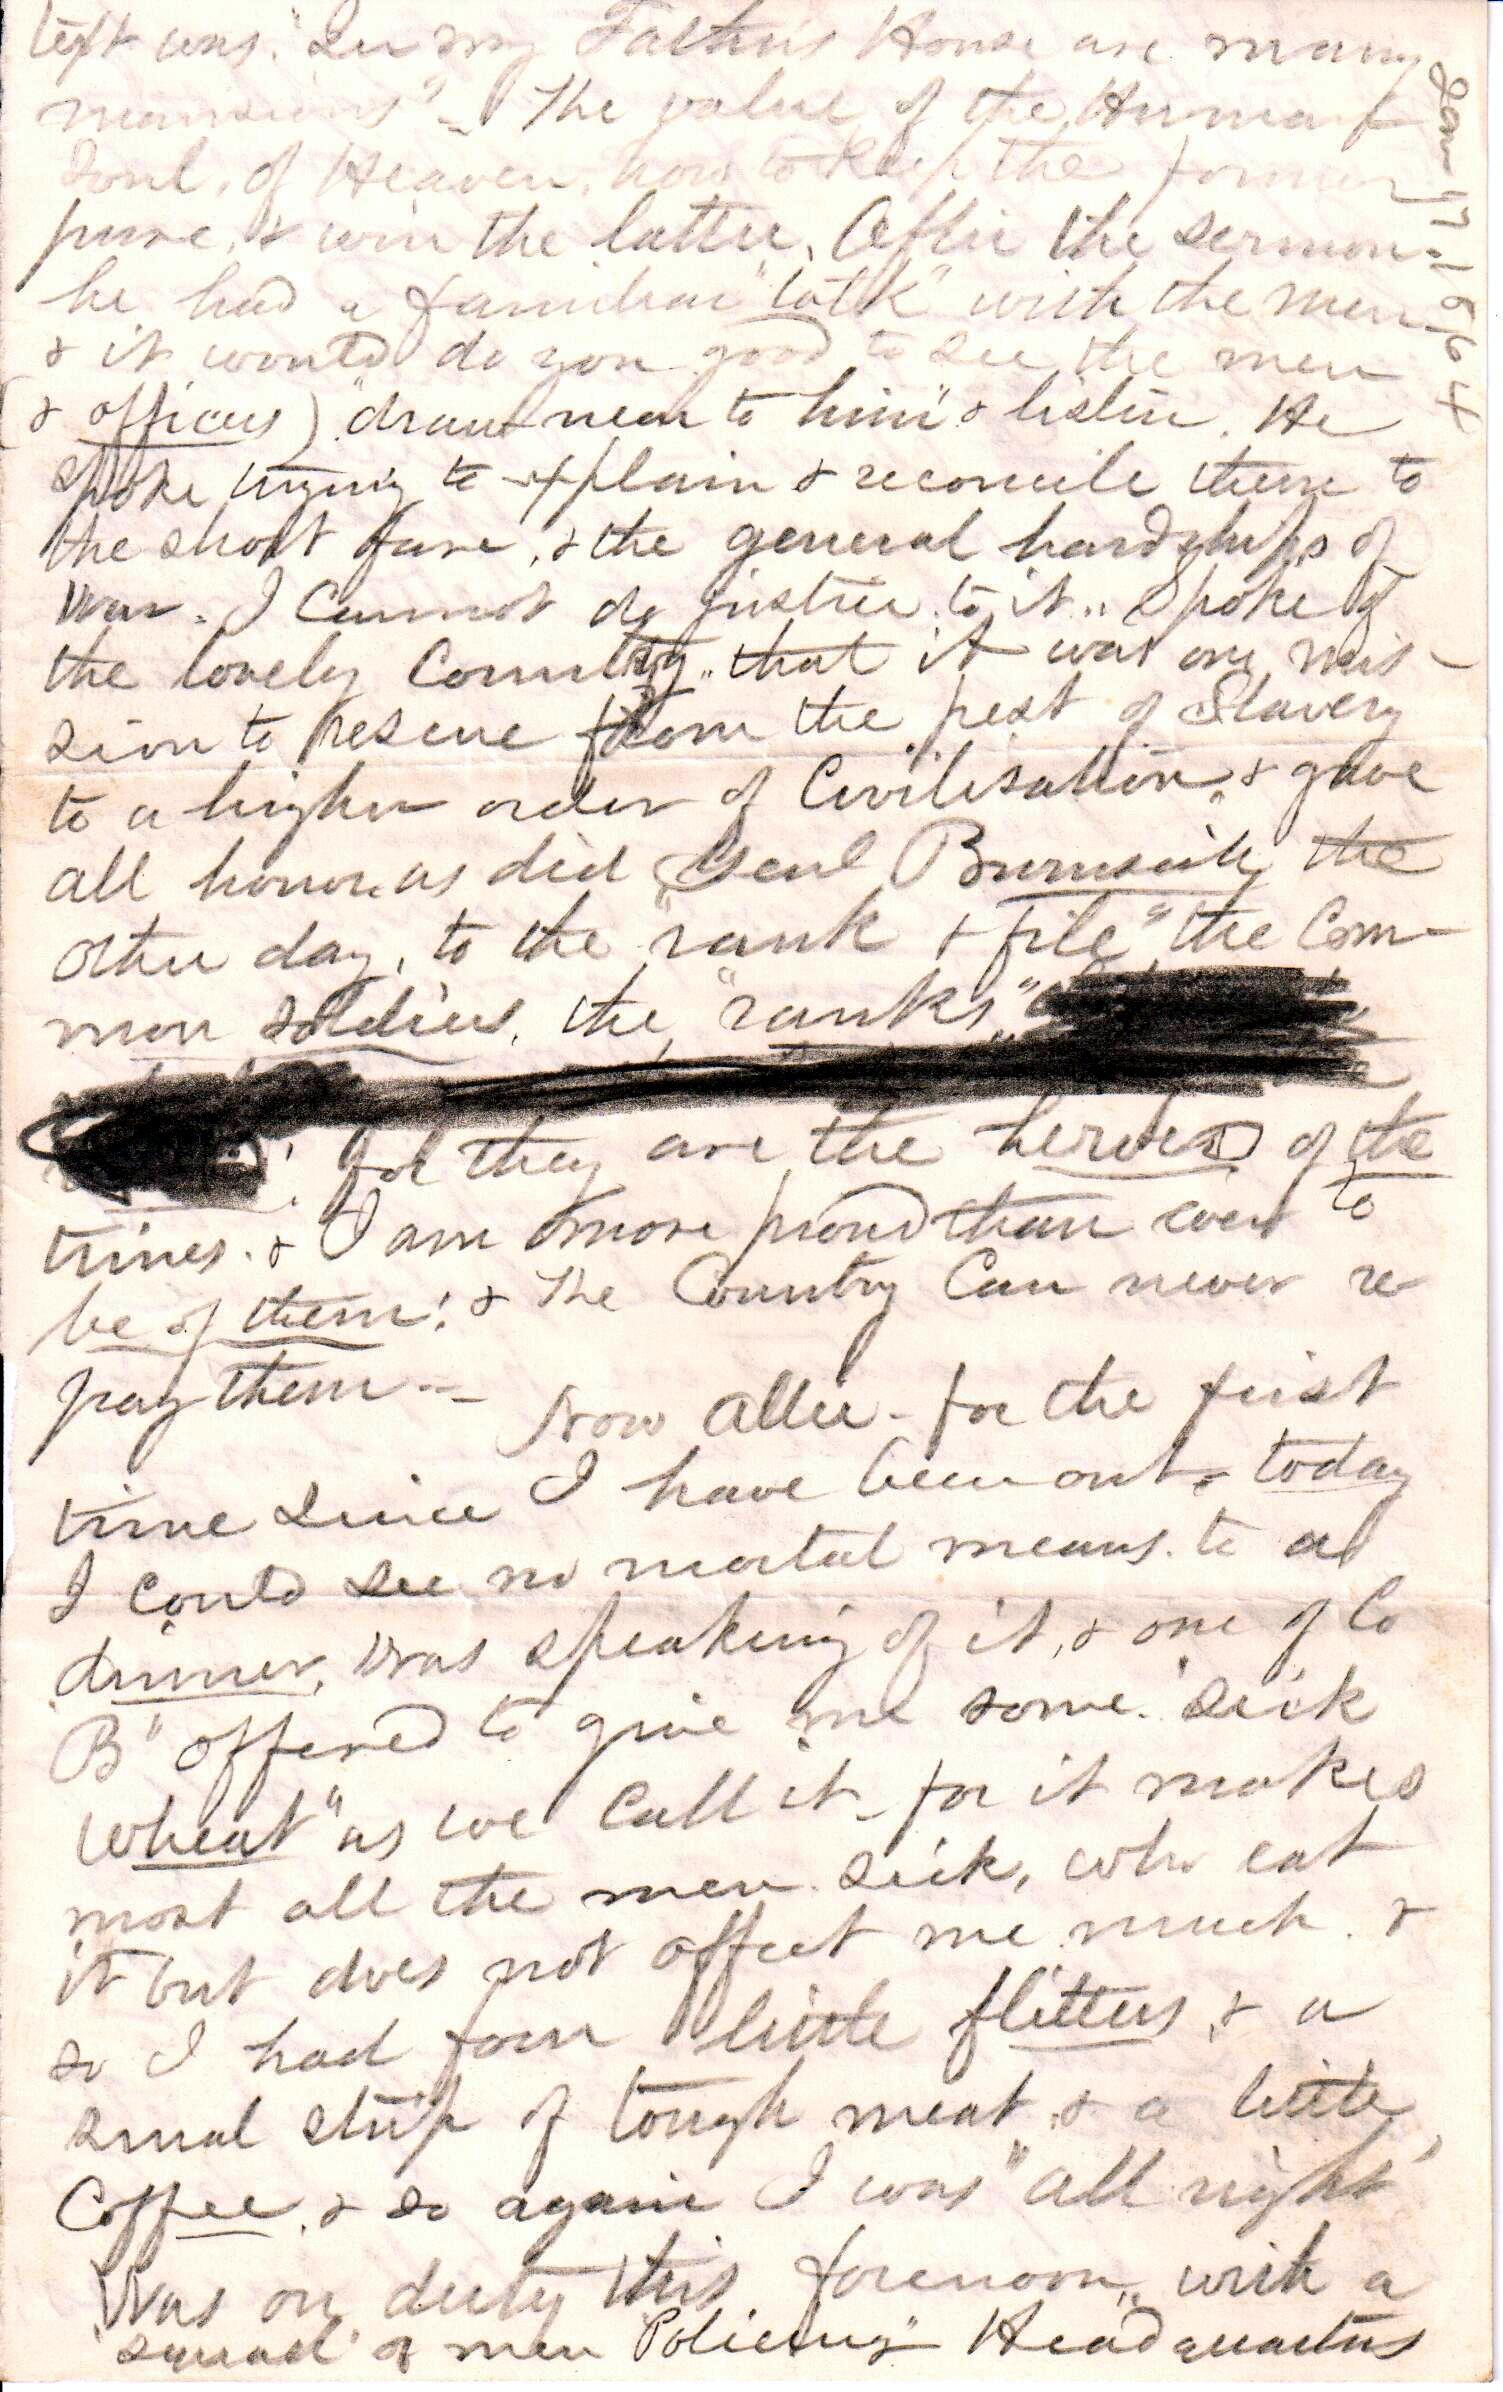 text was. "In my Fathers House are many
mansions" - The value of the Human
Soul, of Heaven, how to keep the former
pure, & win the latter. After the sermon
he had a familiar "talk" with the men
& it would do you good to see the men
(& officers) "draw near to him" & listen. He
spoke trying to explain & reconcile them to
the short fare, & the general hardships of
War. I Cannot do justice to it. Spoke of
the lovely Country, that it was our mis-
sion to rescue from the pest of Slavery
to a higher order of Civilisation, & gave
all honor, as did Genl Burnside the
other day, to the "rank & file", the Com-
mon soldiers, the "ranks,"
! for they are the heroes of the
times. & I am more proud than ever to
be of them! & The Country Can never re-
pay them -- Now Allie - for the first
time since I have been out - today
I could see no mortal means to a
dinner. Was speaking of it, & one of Co
B" offered to give me some "sick
wheat" as we call it - for it makes
most all the men sick, who eat
it but does not affect me much. &
so I had four little flitters, & a
small strip of tough meat, & a little
Coffee, & so again I was "all right"
Was on duty this forenoon, with a
"squad" of men "Policing" Headquarters
Jan 17. 1864